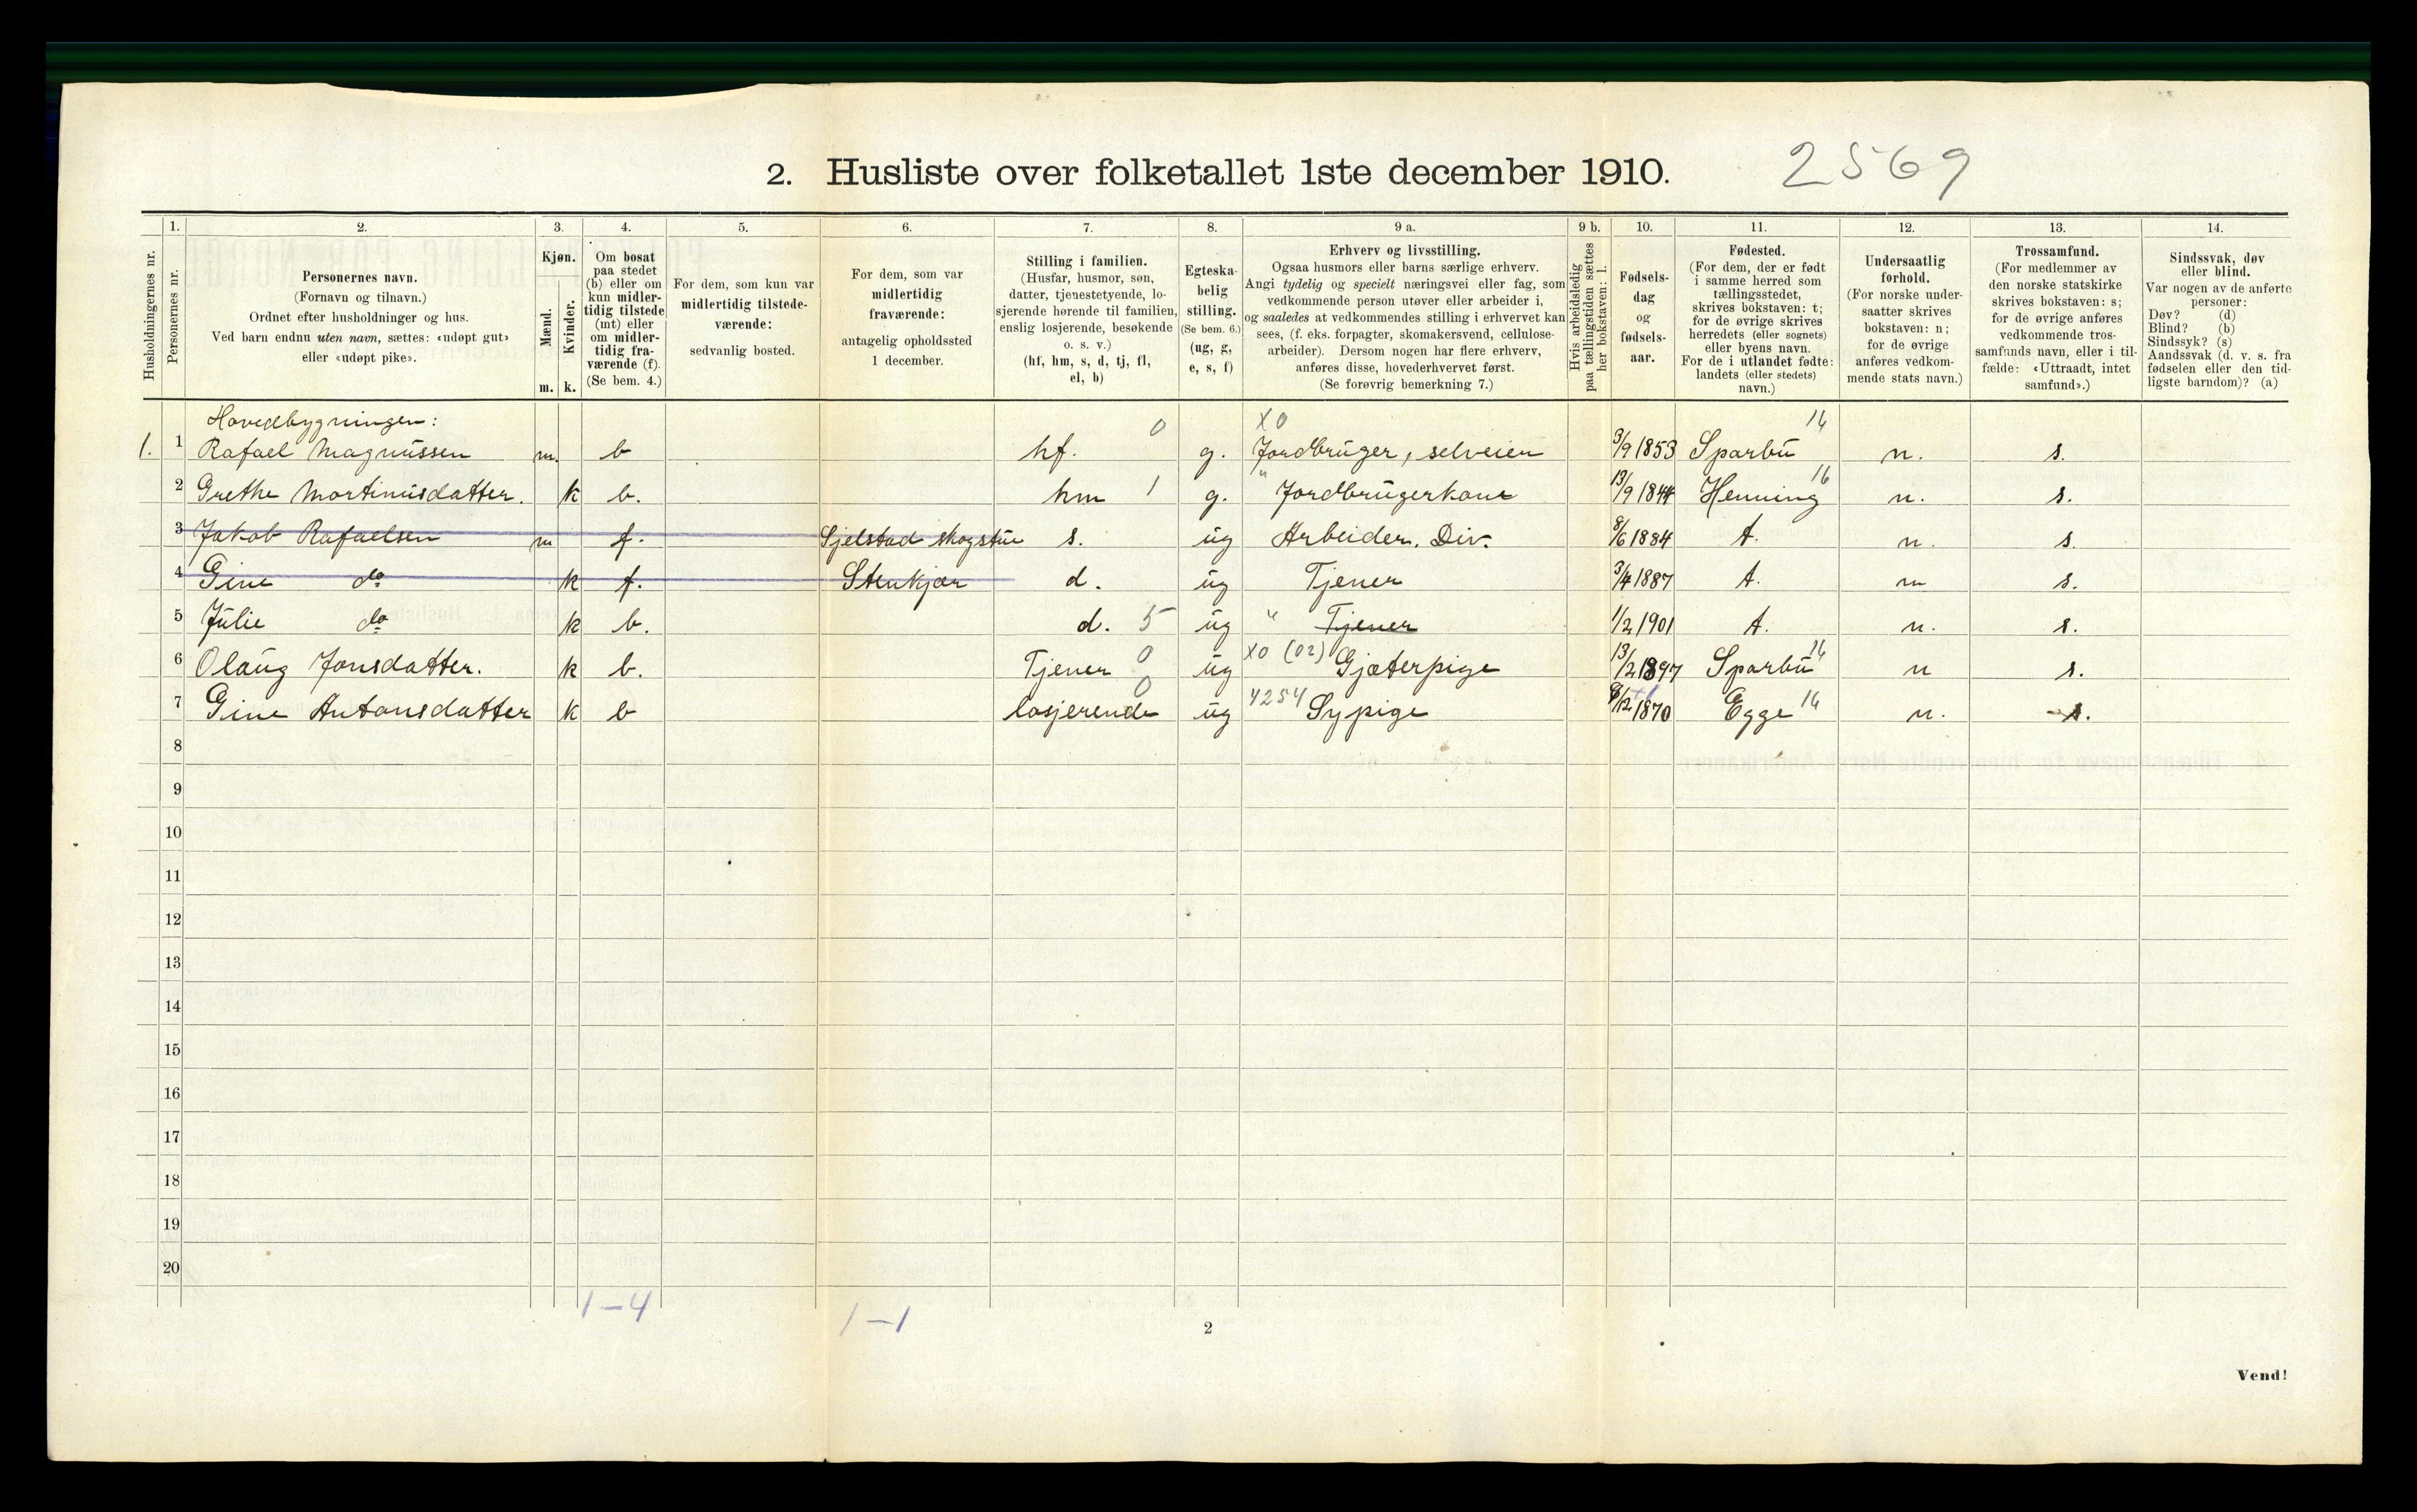 2. Husliste over folketallet 1ste december 1910. 2569
1. 2. 3. 4. 5. 6. 7. 8. 9 a. 9 b. 10. 11. 12. 13. 14.
Husholdningernes nr.
Personernes nr.
Personernes navn.
(Fornavn og tilnavn.)
Ordnet efter husholdninger og hus.
Ved barn endnu uten navn, sættes: «udøpt gut»
eller «udøpt pike».
Kjøn.
Mænd.
Kvinder.
m. k.
Om bosat
paa stedet
(b) eller om
kun midler-
tidig tilstede
(mt) eller
om midler-
tidig fra-
værende (f).
(Se bem. 4.)
For dem, som kun var
midlertidig tilstede-
værende:
sedvanlig bosted.
For dem, som var
midlertidig
fraværende:
antagelig opholdssted
1 december.
Stilling i familien.
(Husfar, husmor, søn,
datter, tjenestetyende, lo-
sjerende hørende til familien,
enslig losjerende, besøkende
o. s. v.)
(hf, hm, s, d, tj, fl,
el, b)
Egteska-
belig
stilling.
(Se bem. 6.)
(ug, g,
e, s, f)
Erhverv og livsstilling.
Ogsaa husmors eller barns særlige erhverv.
Angi tydelig og specielt næringsvei eller fag, som
vedkommende person utøver eller arbeider i,
og saaledes at vedkommendes stilling i erhvervet kan
sees, (f. eks. forpagter, skomakersvend, cellulose-
arbeider). Dersom nogen har flere erhverv,
anføres disse, hovederhvervet først.
(Se forøvrig bemerkning 7.)
Hvis arbeidsledig
paa tællingstiden sættes
her bokstaven: l.
Fødsels-
dag
og
fødsels-
aar.
Fødested.
(For dem, der er født
i samme herred som
tællingsstedet,
skrives bokstaven: t;
for de øvrige skrives
herredets (eller sognets)
eller byens navn.
For de i utlandet fødte:
landets (eller stedets)
navn.)
Undersaatlig
forhold.
(For norske under-
saatter skrives
bokstaven: n;
for de øvrige
anføres vedkom-
mende stats navn.)
Trossamfund.
(For medlemmer av
den norske statskirke
skrives bokstaven: s;
for de øvrige anføres
vedkommende tros-
samfunds navn, eller i til-
fælde: «Uttraadt, intet
samfund».)
Sindssvak, døv
eller blind.
Var nogen av de anførte
personer:
Døv? (d)
Blind? (b)
Sindssyk? (s)
Aandssvak (d. v. s. fra
fødselen eller den tid-
ligste barndom)? (a)
Hovedbygningen:
1. 1 Rafael Magnussen m. b hf. 0 g. X0 Jordbruger, selveier 3/9 1853 Sparbu 16 n. s.
2 Grethe Martinusdatter. k b. hm 1 g. " Jordbrugerkone 13/9 1844 Henning 16 n. s.
3 Jakob Rafaelsen m f. Sjelstad skogstue s. ug Arbeider. Div. 8/6 1884 t. n. s.
4 Gine do k f. Stenkjær d. ug Tjener 3/4 1887 t. n s.
5 Julie do k b. d. 5 ug " Tjener 1/2 1901 t. n. s.
6 Olaug Jonsdatter. k b. Tjener 0 ug X0 (02) Gjæterpige 13/2 1897 Sparbu 16 n s.
7 Gine Antonsdatter k b losjerende 0 ug 4254 Sypige 8/12 1870 Egge 16 n. s.
8
9
10
11
12
13
14
15
16
17
18
19
20
1-4 1-1
2
Vend!